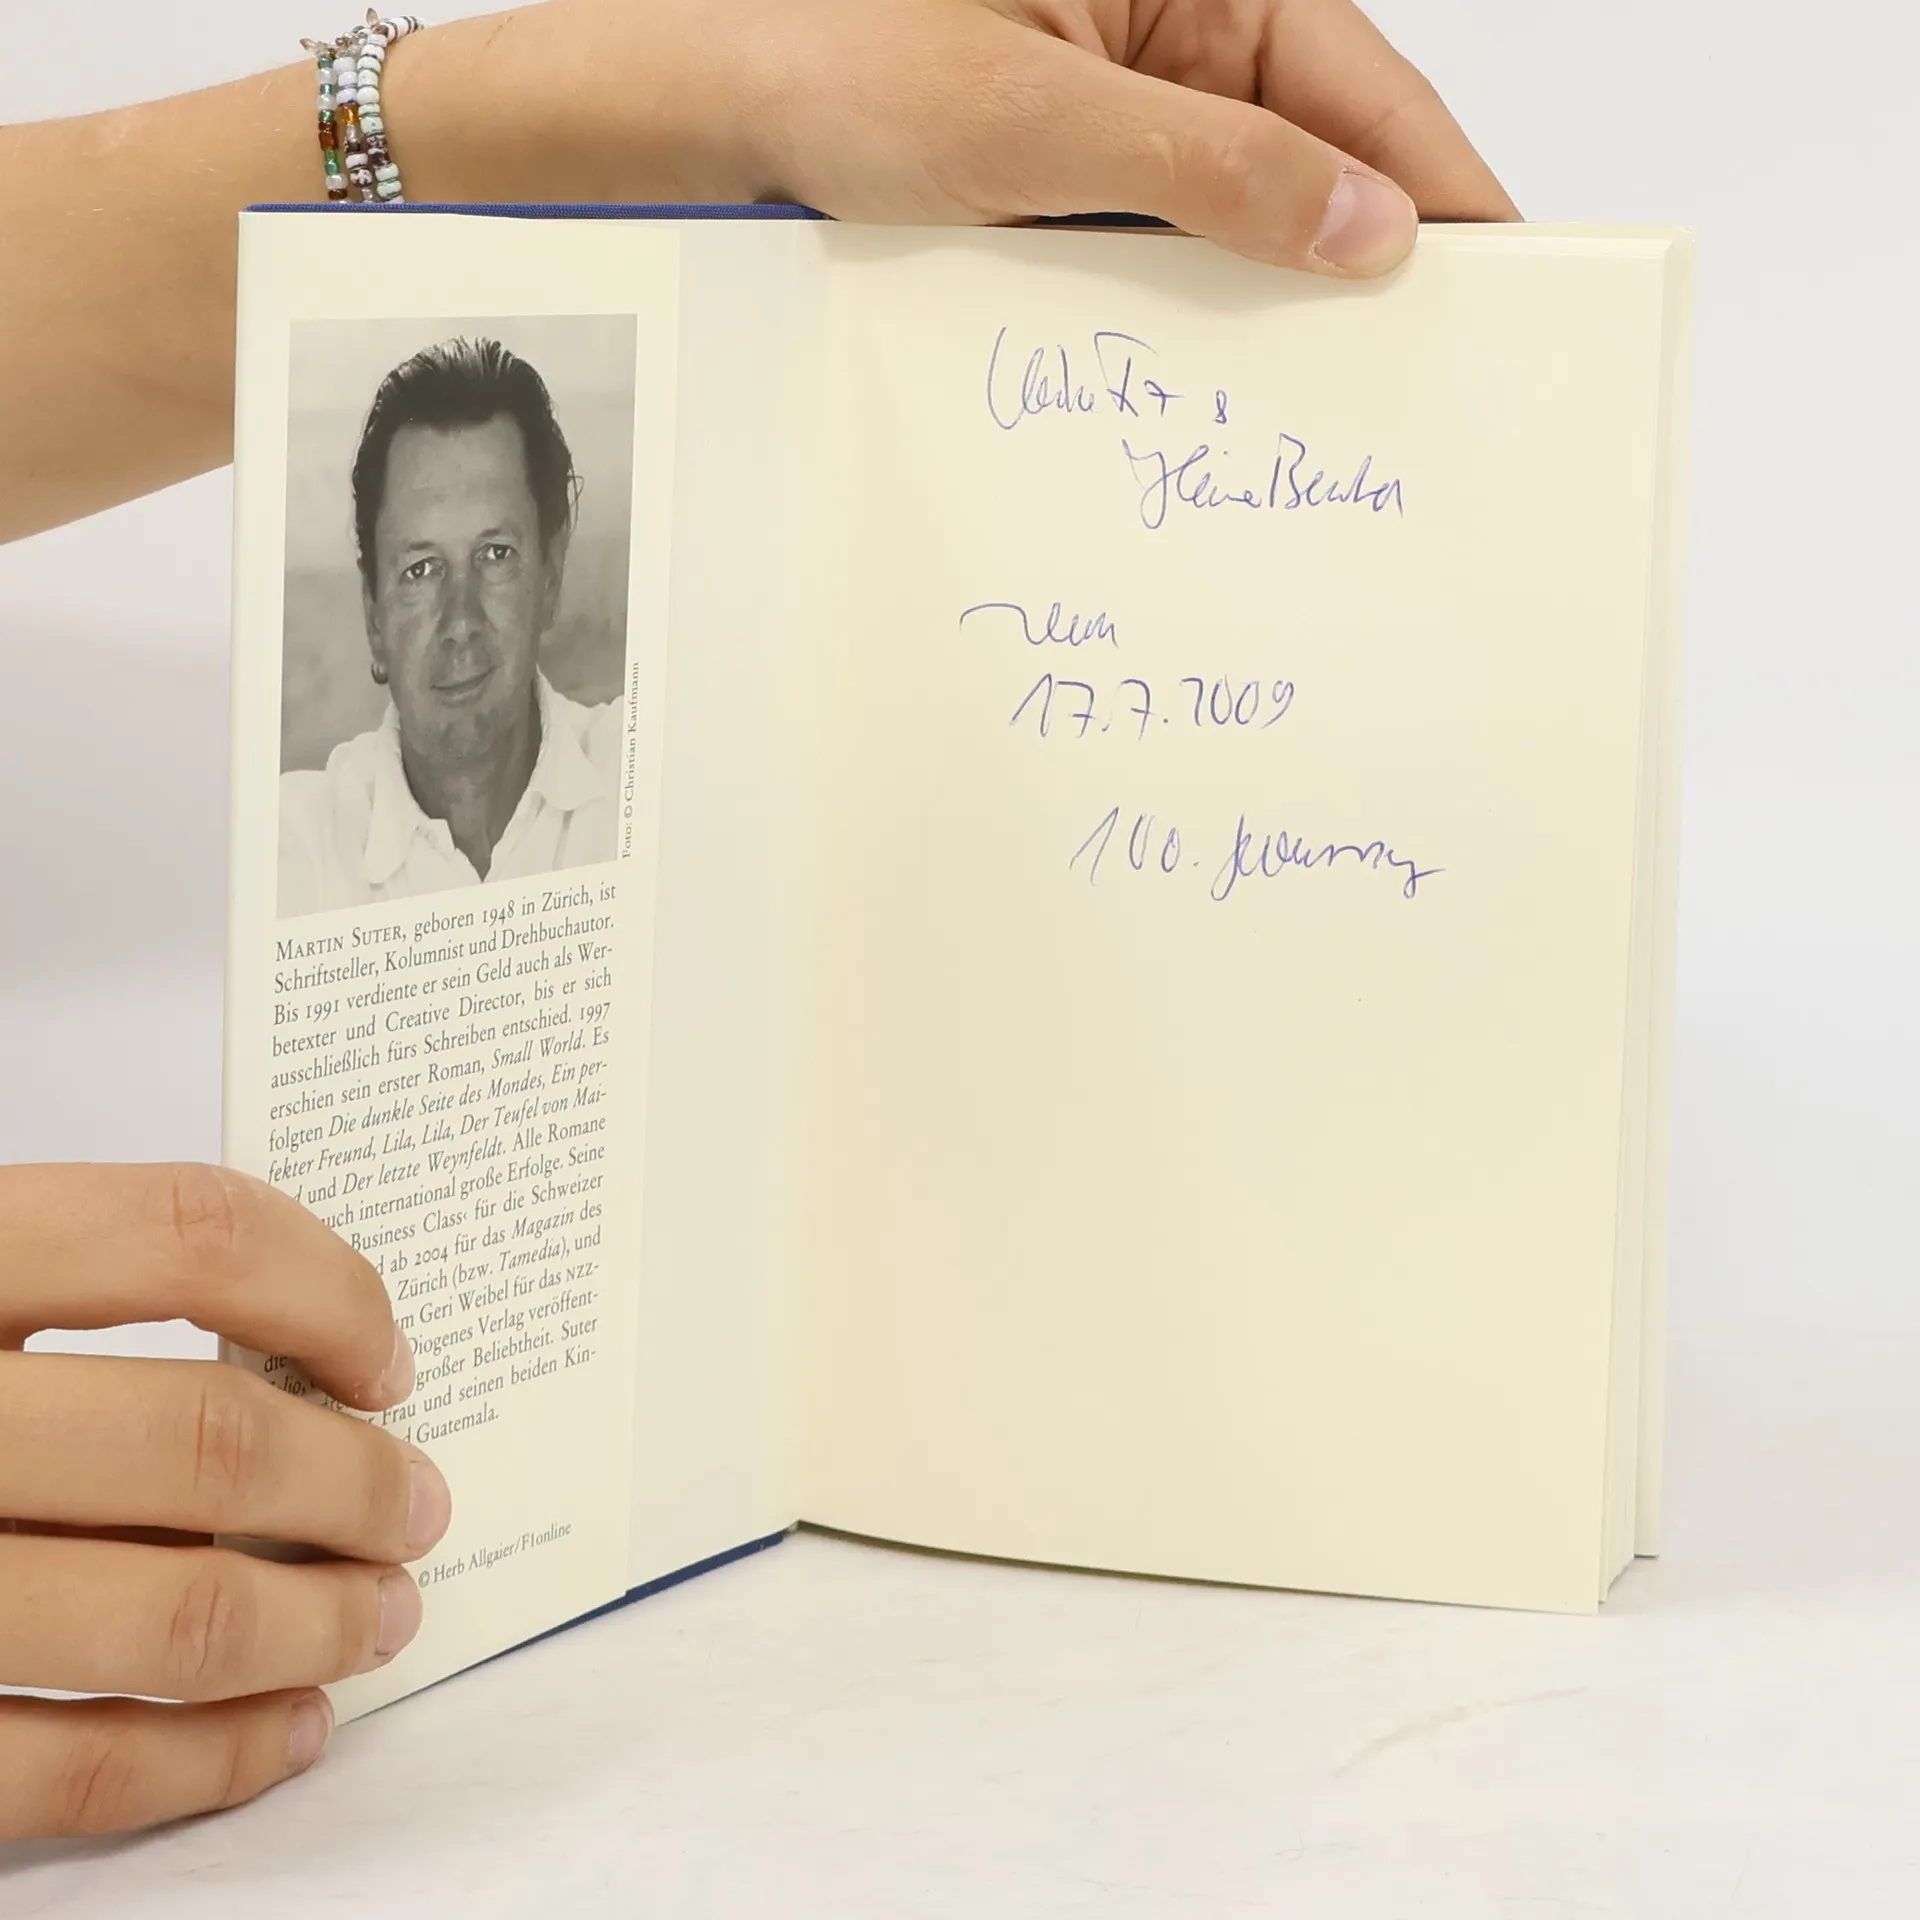 Foto: © Christian Kaufmann
MARTIN SUTER, geboren 1948 in Zürich, ist
Schriftsteller, Kolumnist und Drehbuchautor.
Bis 1991 verdiente er sein Geld auch als Wer-
betexter und Creative Director, bis er sich
ausschließlich fürs Schreiben entschied. 1997
erschien sein erster Roman, Small World. Es
folgten Die dunkle Seite des Mondes, Ein per-
fekter Freund, Lila, Lila, Der Teufel von Mai-
d und Der letzte Weynfeldt. Alle Romane
uch international große Erfolge. Seine
Business Class‹ für die Schweizer
d ab 2004 für das Magazin des
Zürich (bzw. Tamedia), und
um Geri Weibel für das NZZ-
Diogenes Verlag veröffent-
die großer Beliebtheit. Suter
r Frau und seinen beiden Kin-
d Guatemala.
© Herb Allgaier/F1online
8
17.7.2009
100.